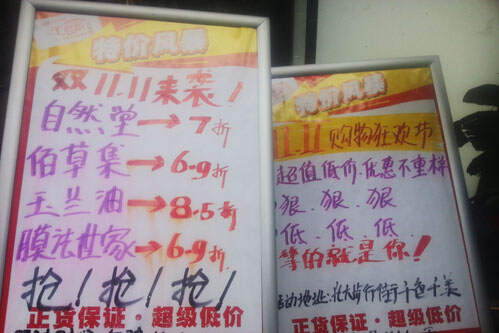 特价风暴
双11.11来袭！
自然堂→7折
佰草集→6.9折
玉兰油→8.5折
膜法世家→6.9折
抢！抢！抢！
正货保证·超级低价
特价风暴
11.11购物狂欢节
超值低价.优惠不重样
狠.狠.狠.
低.低.低.
等的就是你！
活动地址:北大步行街千色千美
正货保证·超级低价